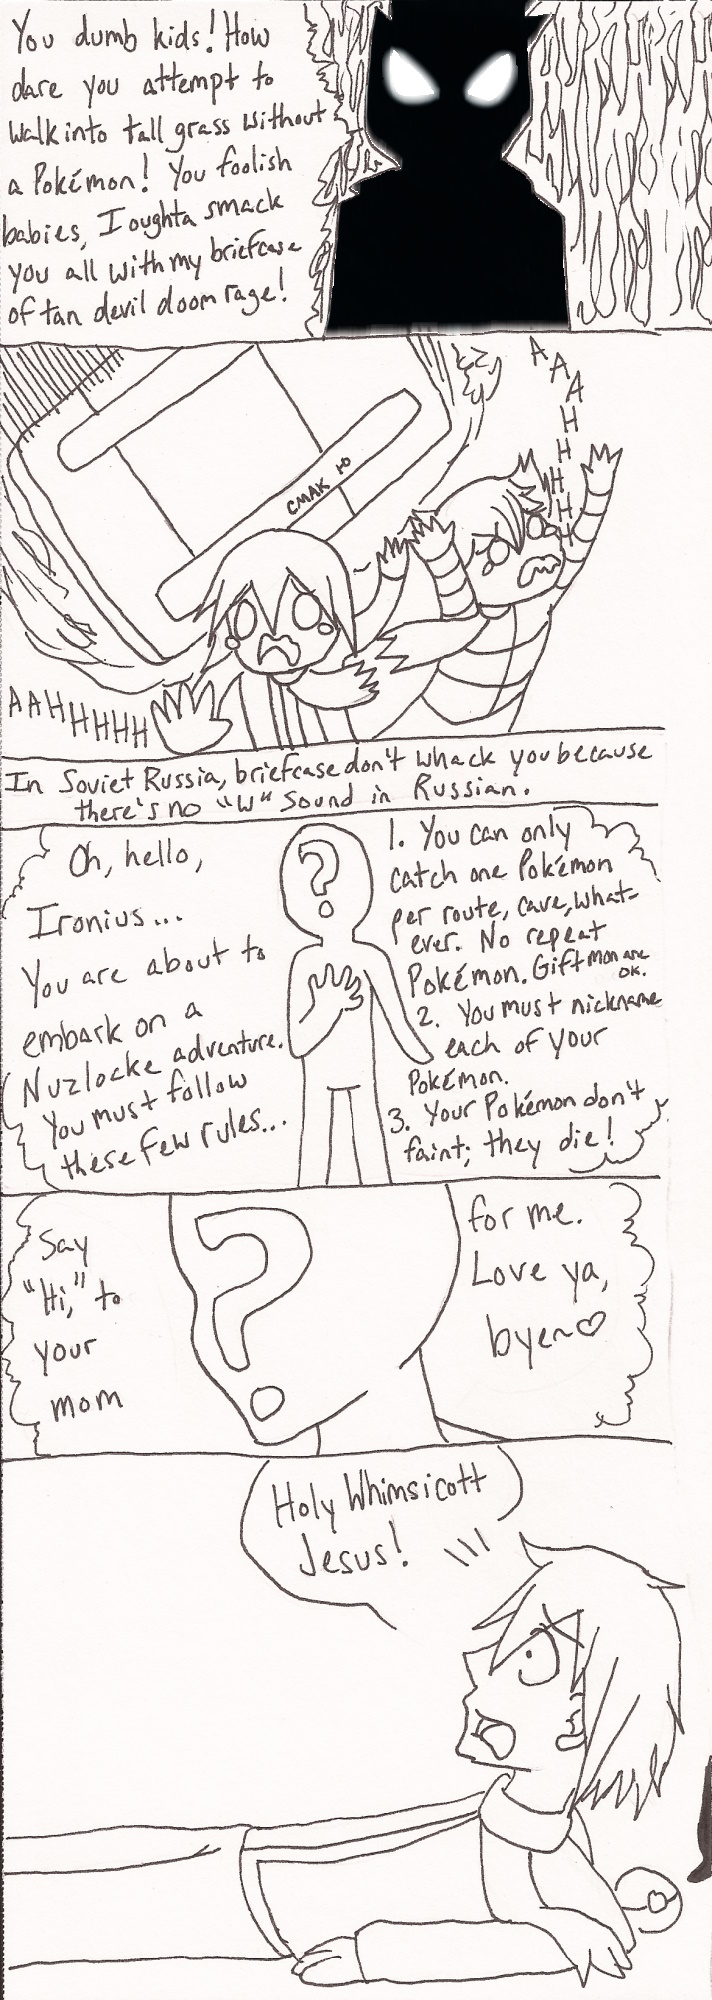 You dumb kids! How
dare you attempt to
walk into tall grass without
a Pokémon! You foolish
babies, I oughta smack
you all with my briefcase
of tan devil doom rage!
AAAHHHHH
СМАК Ю
AAHHHHHH
In Soviet Russia, briefcase don't whack you because
there's no "W" sound in Russian.
Oh, hello,
Ironius...
You are about to
embark on a
Nuzlocke adventure.
You must follow
these few rules...
?
1. You can only
catch one Pokémon
per route, cave, what-
ever. No repeat
Pokémon. Gift mon are
OK.
2. You must nickname
each of your
Pokémon.
3. Your Pokémon don't
faint; they die!
Say
"Hi," to
your
mom
?
for me.
Love ya,
bye~♡
Holy Whimsicott
Jesus!